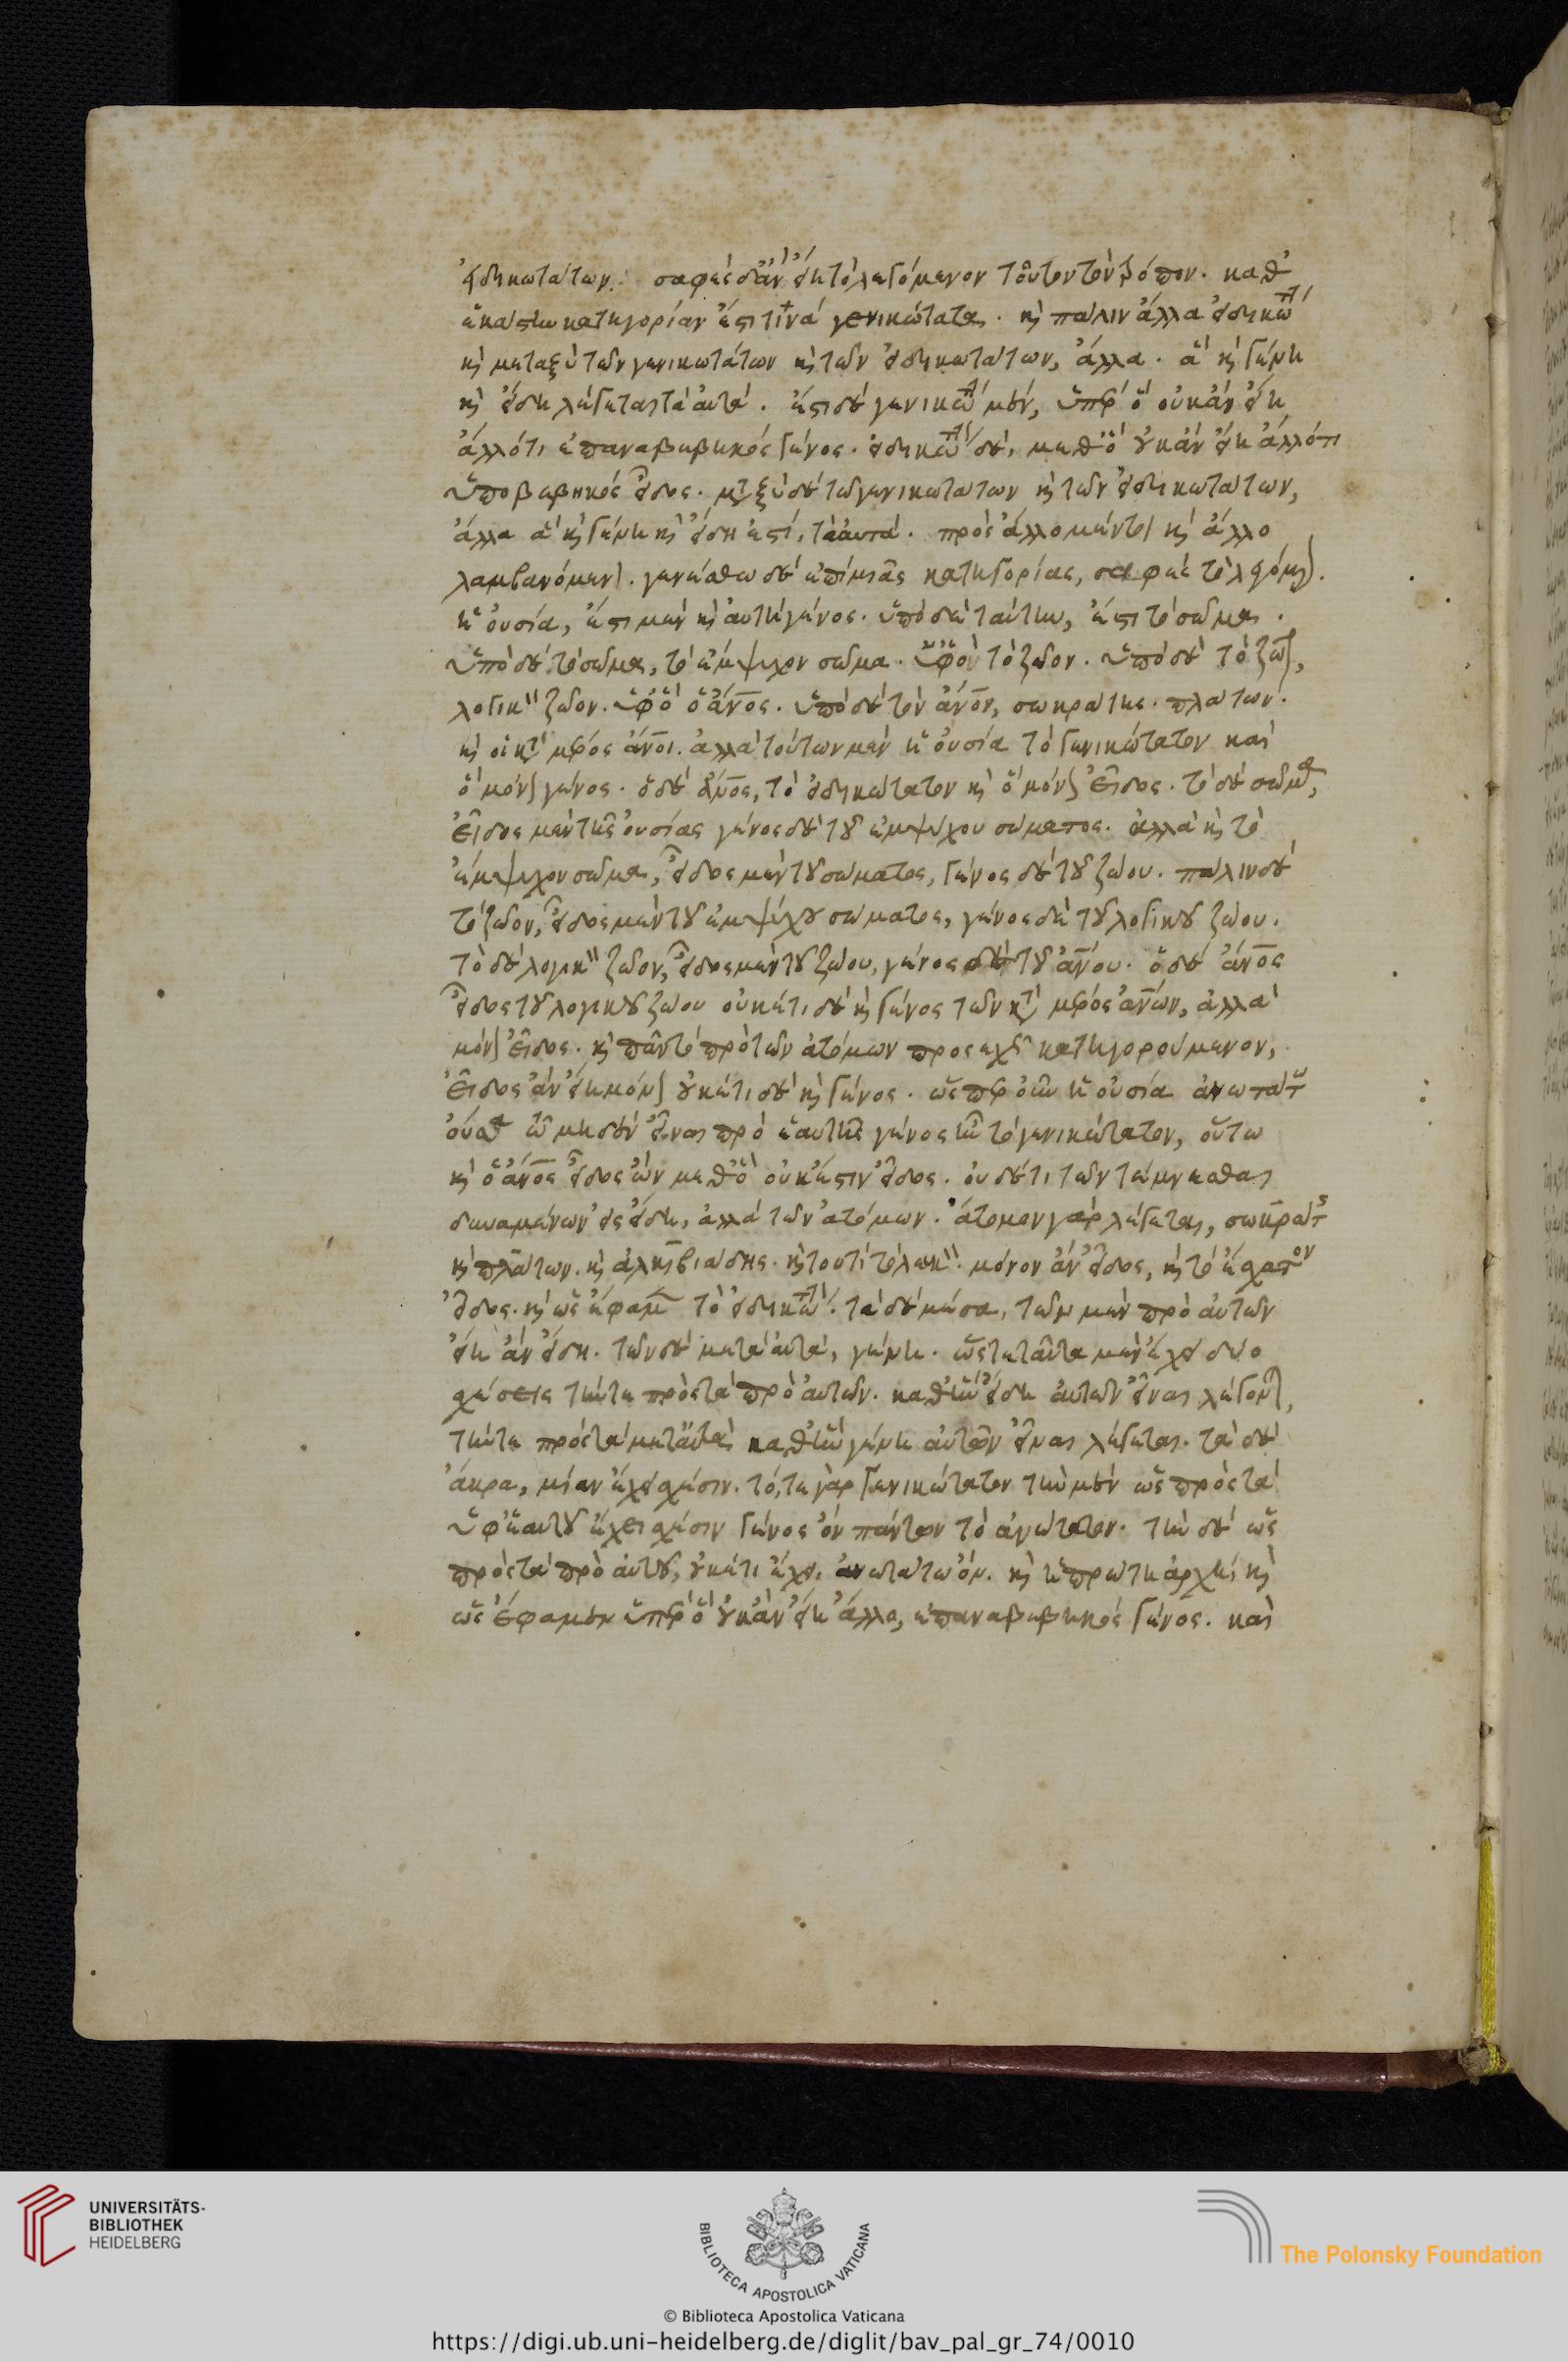 εἰδικωτάτων. σαφὲς δ' ἂν εἴη τὸ λεγόμενον τοῦτον τὸν τρόπον. καθ'
ἑκάστην κατηγορίαν ἐστί τινα γενικώτατα. καὶ πάλιν ἄλλα εἰδικώτ
καὶ μεταξὺ τῶν γενικωτάτων καὶ τῶν εἰδικωτάτων, ἄλλα. ἃ καὶ γένη
καὶ εἴδη λέγεται τὰ αὐτά. ἔστι δὲ γενικώτ μὲν, ὑπὲρ ὃ οὐκ ἂν εἴη
ἄλλό τι ἐπαναβεβηκὸς γένος. εἰδικώτ δὲ, μεθ' ὃ οὐκ ἂν εἴη ἄλλό τι
ὑποβεβηκὸς εἶδος. μεταξὺ δὲ τῶν γενικωτάτων καὶ τῶν εἰδικωτάτων,
ἄλλα ἃ καὶ γένη καὶ εἴδη ἐστί, τὰ αὐτά. πρὸς ἄλλο μέντοι καὶ ἄλλο
λαμβανόμενα. γενέσθω δὲ ἐπὶ μιᾶς κατηγορίας, σαφὲς τὸ λεγόμενον.
ἡ οὐσία, ἔστι μὲν καὶ αὐτὴ γένος. ὑπὸ δὲ ταύτην, ἐστὶ τὸ σῶμα.
ὑπὸ δὲ τὸ σῶμα, τὸ ἔμψυχον σῶμα. ὑφ' ὃ τὸ ζῶον. ὑπὸ δὲ τὸ ζῶον,
λογικὸν ζῶον. ὑφ' ὃ ὁ ἄνος. ὑπὸ δὲ τὸν ἄνον, σωκράτης. πλάτων.
καὶ οἱ κατὰ μέρος ἄνοι. ἀλλὰ τούτων μὲν ἡ οὐσία τὸ γενικώτατον καὶ
ὃ μόνον γένος. ὁ δὲ ἄνος, τὸ εἰδικώτατον καὶ ὃ μόνον εἶδος. τὸ δὲ σῶμα,
εἶδος μὲν τῆς οὐσίας γένος δὲ τοῦ ἐμψύχου σώματος. ἀλλὰ καὶ τὸ
ἔμψυχον σῶμα, εἶδος μὲν τοῦ σώματος, γένος δὲ τοῦ ζώου. πάλιν δὲ
τὸ ζῶον, εἶδος μὲν τοῦ ἐμψύχου σώματος, γένος δὲ τοῦ λογικοῦ ζώου.
τὸ δὲ λογικὸν ζῶον, εἶδος μὲν τοῦ ζώου, γένος δὲ τοῦ ἄνου. ὁ δὲ ἄνος
εἶδος τοῦ λογικοῦ ζώου οὐκέτι δὲ καὶ γένος τῶν κατὰ μέρος ἄνων, ἀλλὰ
μόνον εἶδος. καὶ πᾶν τὸ πρὸ τῶν ἀτόμων προσεχῶς κατηγορούμενον,
εἶδος ἂν εἴη μόνον οὐκέτι δὲ καὶ γένος. ὥσπερ οὖν ἡ οὐσία ἀνωτάτω
οὖσα τῷ μηδὲν εἶναι πρὸ ἑαυτῆς γένος ἦν τὸ γενικώτατον, οὕτω
καὶ ὁ ἄνος εἶδος ὢν μεθ' ὃ οὐκ ἔστιν εἶδος. οὐδέ τι τῶν τέμνεσθαι
δυναμένων εἰς εἴδη, ἀλλὰ τῶν ἀτόμων. ἄτομον γὰρ λέγεται, σωκράτης
καὶ πλάτων. καὶ ἀλκιβιάδης. καὶ τουτὶ τὸ λευκὸν. μόνον ἂν εἶδος, καὶ τὸ ἔσχατον
εἶδος. καὶ ὡς ἔφαμεν τὸ εἰδικώτ. τὰ δὲ μέσα, τῶν μὲν πρὸ αὐτῶν
εἴη ἂν εἴδη. τῶν δὲ μετὰ αὐτὰ, γένη. ὥστε ταῦτα μὲν ἔχει δύο
σχέσεις τήν τε πρὸς τὰ πρὸ αὐτῶν. καθ' ἣν εἴδη αὐτῶν εἶναι λέγονται,
τήν τε πρὸς τὰ μετ' αὐτὰ καθ' ἣν γένη αὐτῶν εἶναι λέγεται. τὰ δὲ
ἄκρα, μίαν ἔχει σχέσιν. τό, τε γὰρ γενικώτατον τὴν μὲν ὡς πρὸς τὰ
ὑφ' ἑαυτοῦ ἔχει σχέσιν γένος ὂν πάντων τὸ ἀνώτατον. τὴν δὲ ὡς
πρὸς τὰ πρὸ αὐτοῦ, οὐκέτι ἔχει. ἀνωτάτω ὄν. καὶ ἡ πρώτη ἀρχὴ, καὶ
ὡς ἔφαμεν ὑπὲρ ὃ οὐκ ἂν εἴη ἄλλο, ἐπαναβεβηκὸς γένος. καὶ
UNIVERSITÄTS-
BIBLIOTHEK
HEIDELBERG
BIBLIOTECA APOSTOLICA VATICANA
The Polonsky Foundation
© Biblioteca Apostolica Vaticana
https://digi.ub.uni-heidelberg.de/diglit/bav_pal_gr_74/0010